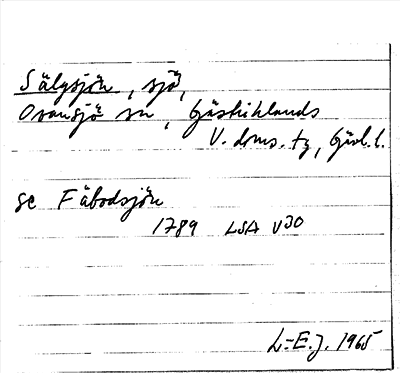 Sälgsjön, sjö,
Ovansjö sn, Gästriklands
V. doms. tg, Gävl. l.
se Fäbodsjön
1789 LSA V30
L-E.J. 1965